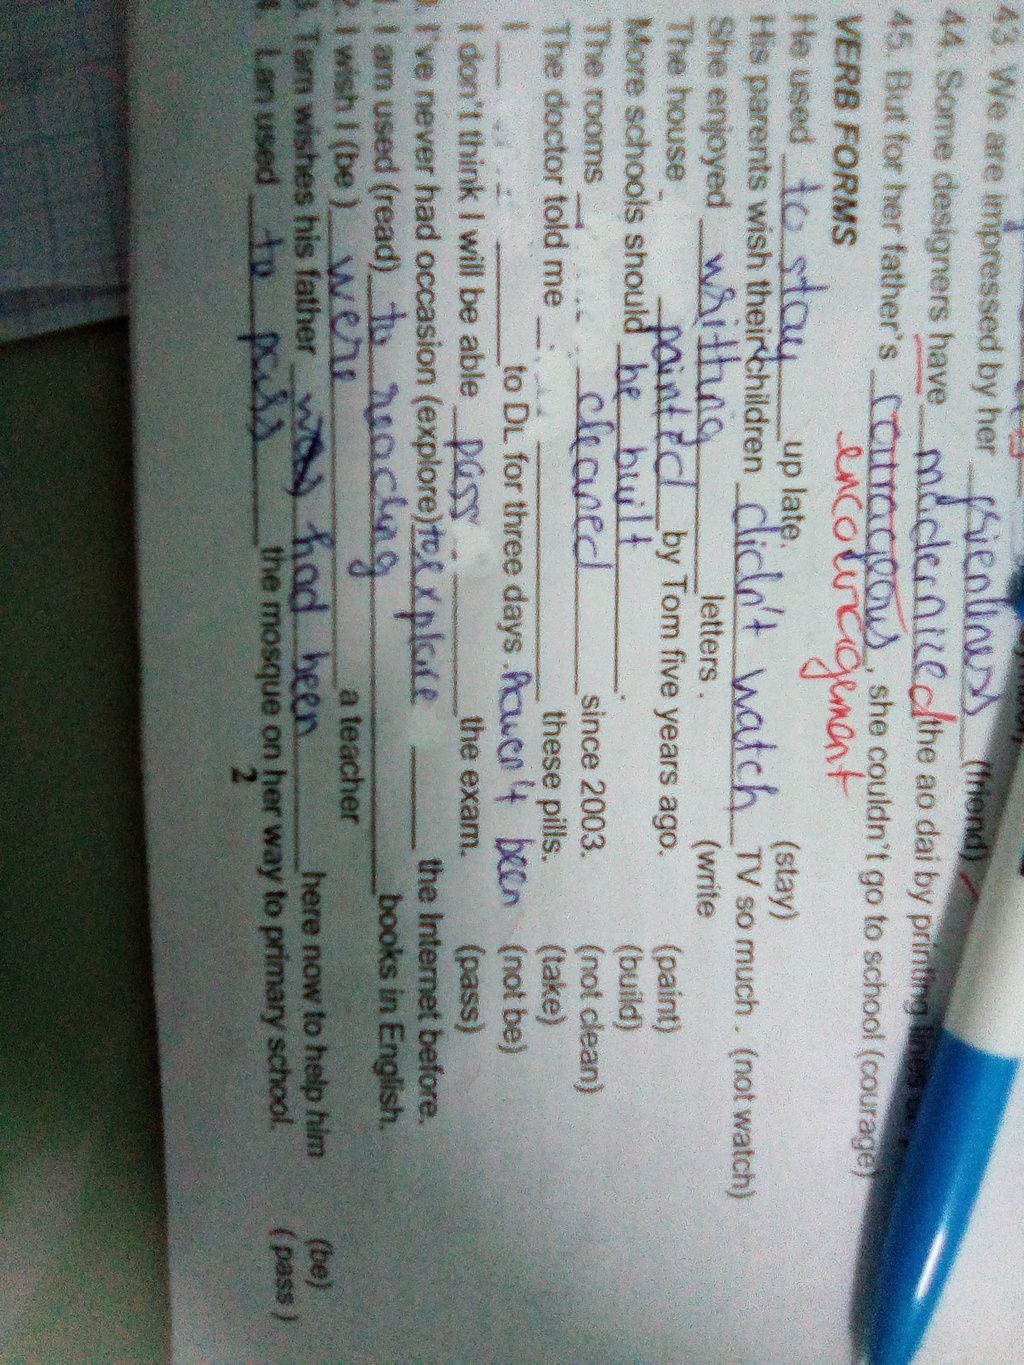 43. We are impressed by her friendliness (friend)
44. Some designers have modernized the ao dai by printing lines
45. But for her father's courageous, she couldn't go to school (courage)
encouragement
VERB FORMS
He used to stay up late. (stay)
His parents wish their children didn't watch TV so much . (not watch)
She enjoyed writting letters . (write
The house painted by Tom five years ago. (paint)
More schools should be built. (build)
The rooms cleaned since 2003. (not clean)
The doctor told me these pills. (take)
I to DL for three days . haven't been (not be)
I don't think I will be able pass the exam. (pass)
I've never had occasion (explore) to explore the Internet before.
I am used (read) to reading books in English.
2. I wish I (be ) were a teacher
3. Tam wishes his father had been here now to help him (be)
4. Lan used to pass the mosque on her way to primary school. ( pass )
2